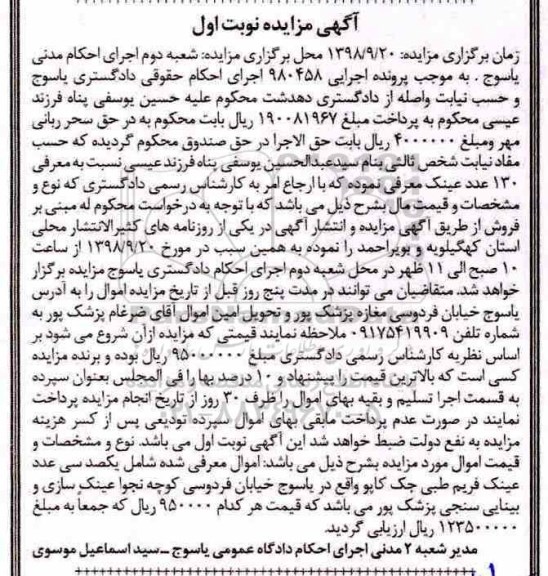 آگهی مزایده نوبت اول
زمان برگزاری مزایده: ۱۳۹۸/۹/۲۰ محل برگزاری مزایده: شعبه دوم اجرای احکام مدنی
یاسوج . به موجب پرونده اجرایی ۹۸۰۴۵۸ اجرای احکام حقوقی دادگستری یاسوج
و حسب نیابت واصله از دادگستری دهدشت محکوم علیه حسین یوسفی پناه فرزند
عیسی محکوم به پرداخت مبلغ ۱۹۰۰۸۱۹۶۷ ریال بابت محکوم به در حق سحر ربانی
مهر ومبلغ ۴۰۰۰۰۰۰ ریال بابت حق الاجرا در حق صندوق محکوم گردیده که حسب
مفاد نیابت شخص ثالثی بنام سیدعبدالحسن یوسفی پناه فرزند عیسی نسبت به معرفی
۱۳۰ عدد عینک معرفی نموده که با ارجاع امر به کارشناس رسمی دادگستری که نوع و
مشخصات و قیمت مال بشرح ذیل می باشد که با توجه به درخواست محکوم له مبنی بر
فروش از طریق آگهی مزایده و انتشار آگهی در یکی از روزنامه های کثیرالانتشار محلی
استان کهگیلویه و بویراحمد را نموده به همین سبب در مورخ ۱۳۹۸/۹/۲۰ از ساعت
۱۰ صبح الی ۱۱ ظهر در محل شعبه دوم اجرای احکام دادگستری یاسوج مزایده برگزار
خواهد شد. متقاضیان می توانند در مدت پنج روز قبل از تاریخ مزایده اموال را به آدرس
یاسوج خیابان فردوسی مغازه پزشک پور و تحویل امین اموال آقای ضرغام پزشک پور به
شماره تلفن ۰۹۱۷۵۴۱۹۹۰۹ ملاحظه نمایند قیمتی که مزایده ازآن شروع می شود بر
اساس نظریه کارشناس رسمی دادگستری مبلغ ۹۵۰۰۰۰۰۰ ریال بوده و برنده مزایده
کسی است که بالاترین قیمت را پیشنهاد و ۱۰ درصد بها را فی المجلس بعنوان سپرده
به قسمت اجرا تسلیم و بقیه بهای اموال را ظرف ۳۰ روز از تاریخ انجام مزایده پرداخت
نمایند در صورت عدم پرداخت مابقی بهای اموال سپرده تودیعی پس از کسر هزینه
مزایده به نفع دولت ضبط خواهد شد این آگهی نوبت اول می باشد. نوع و مشخصات و
قیمت اموال مورد مزایده بشرح ذیل می باشد: اموال معرفی شده شامل یکصد سی عدد
عینک فریم طبی جک کاپو واقع در یاسوج خیابان فردوسی کوچه نجوا عینک سازی و
بینایی سنجی پزشک پور می باشد که قیمت هر کدام ۹۵۰۰۰۰ ریال که جمعاً به مبلغ
۱۲۳۵۰۰۰۰۰ ریال ارزیابی گردید.
مدیر شعبه ۲ مدنی اجرای احکام دادگاه عمومی یاسوج ــ سید اسماعیل موسوی